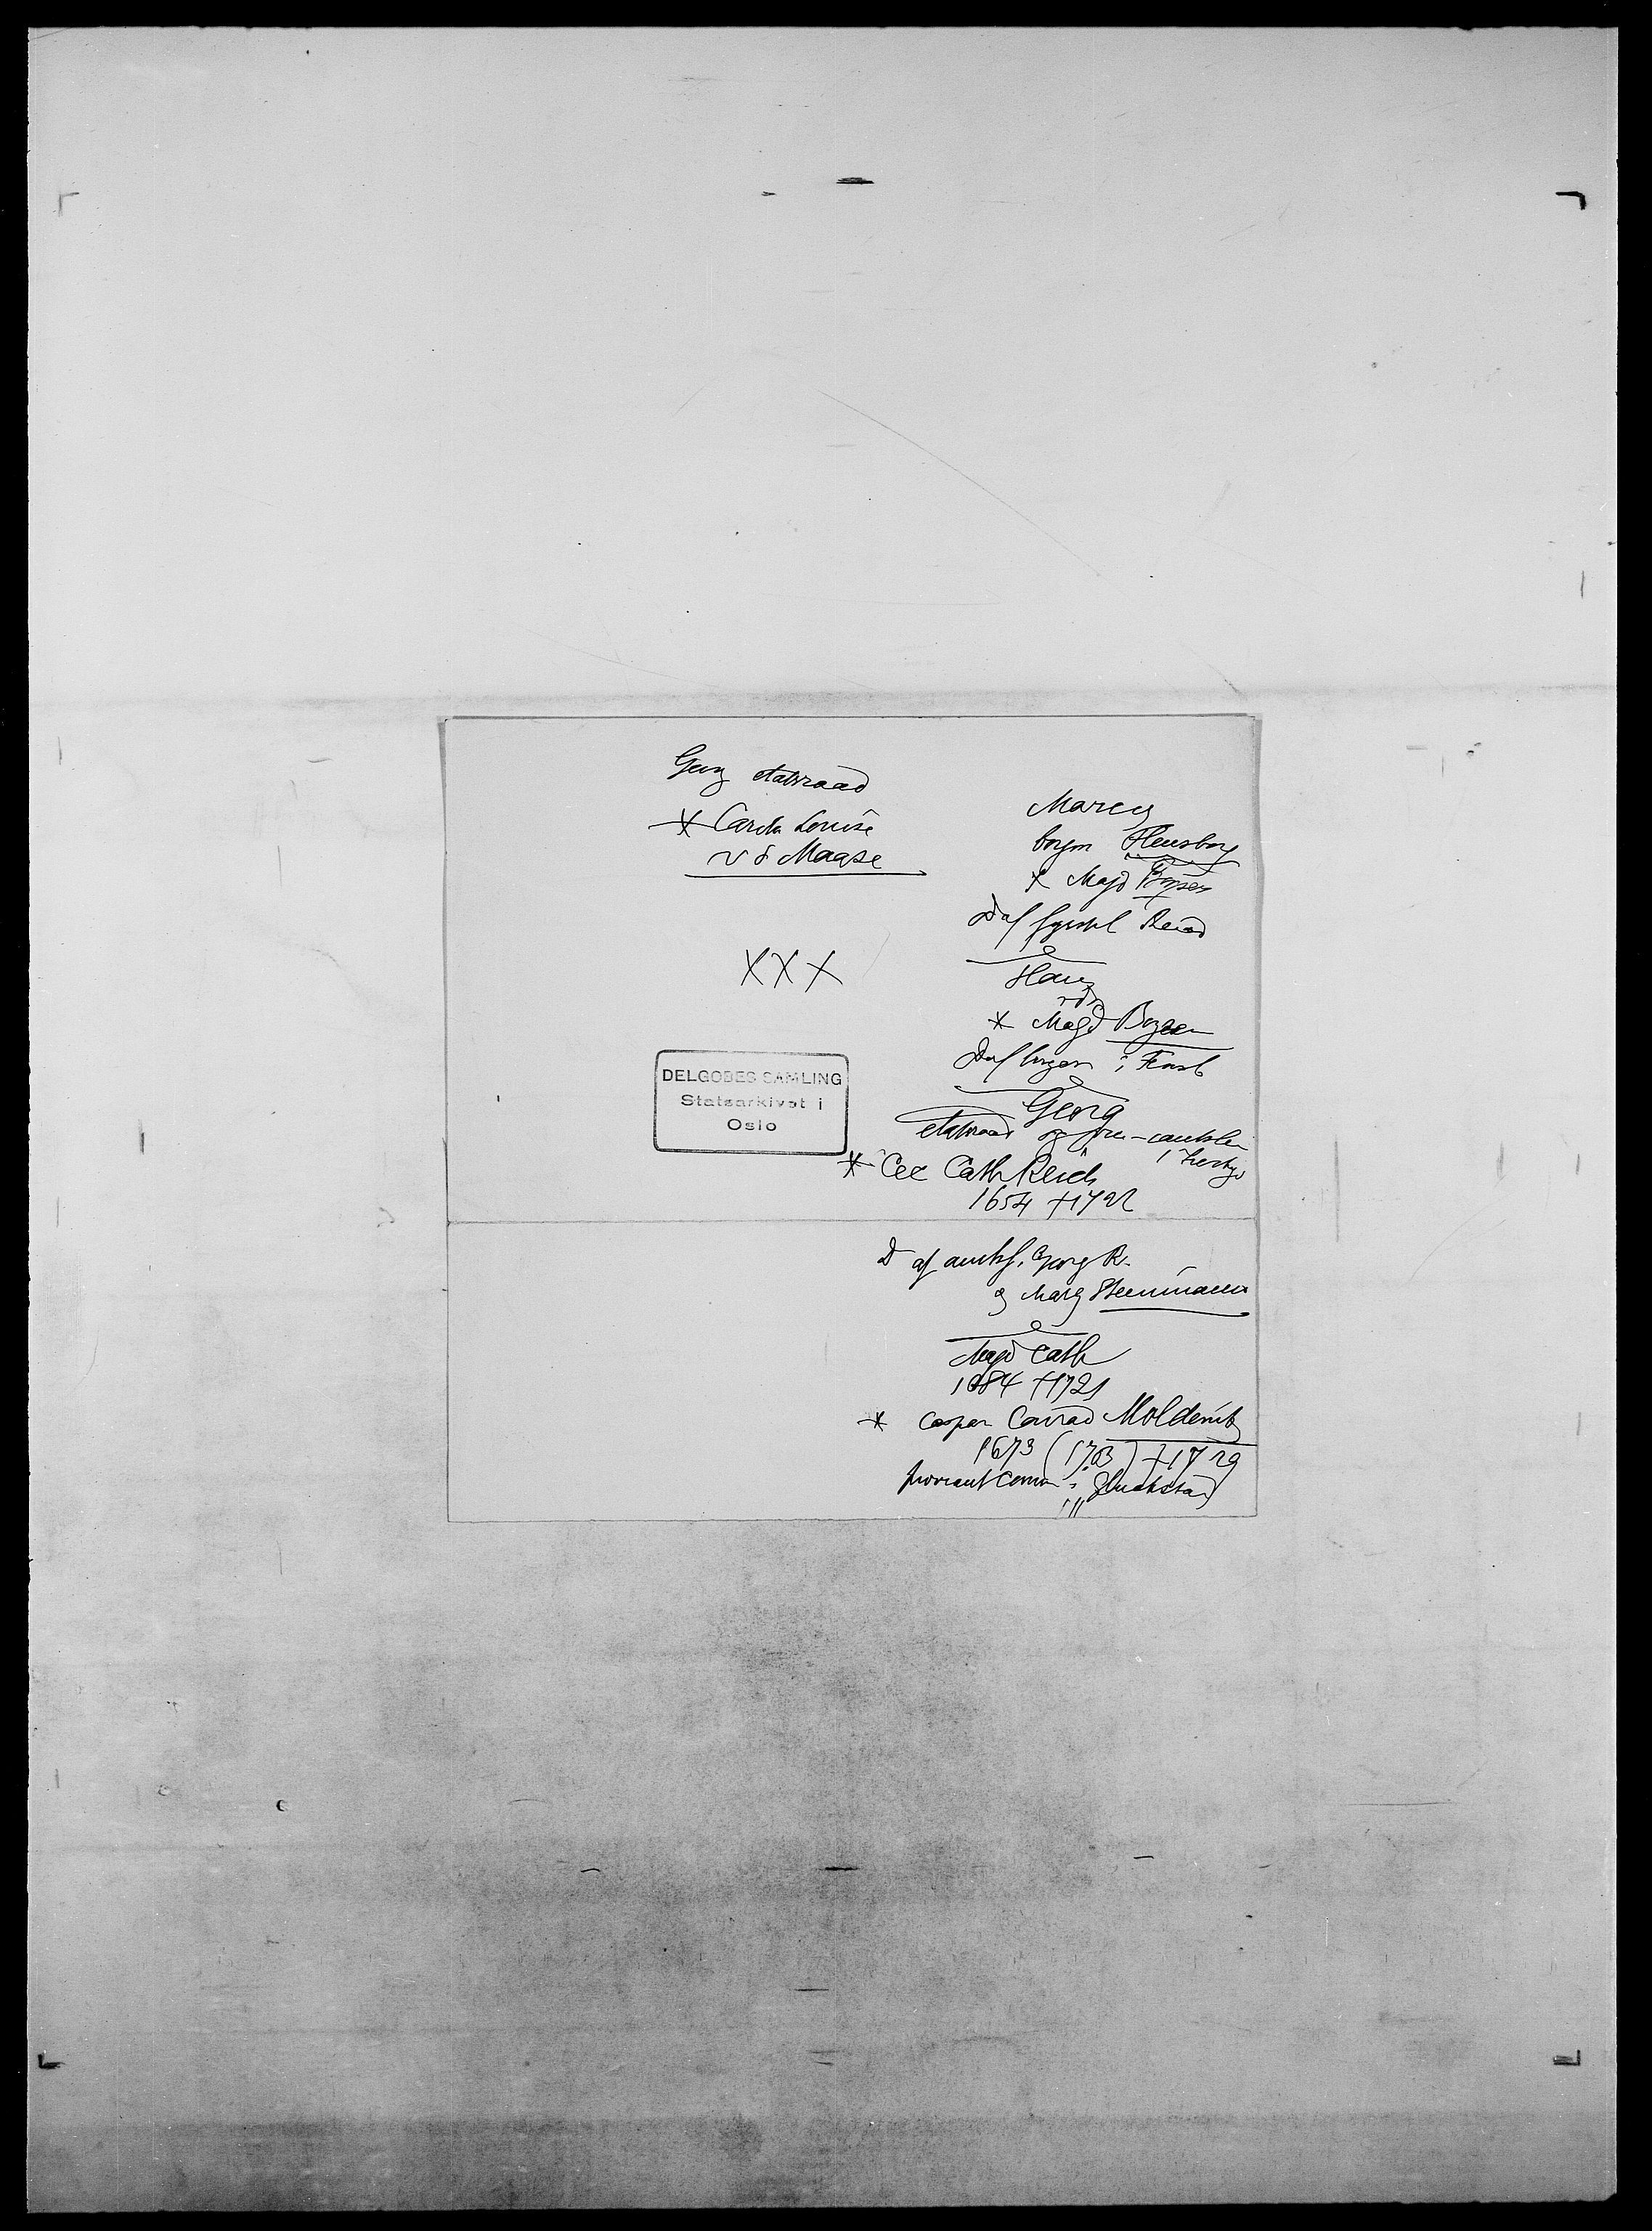 Georg etatsraad
* Carda Louise
v d Maase
XXX
DELGOBES SAMLING
Statsarkivet i
Oslo
Marcus
borgm Flensborg
* Magd Boysen
D af
Hans
rdm
* Magd Boysen
D af borgm i Flensb
Georg
etatsraad og
i hertugd
* Cec Cath Reich
1654 †1722
D af amtsf. Georg R.
og Marg
Magd Cath
1684 †1721
* Casper Conrad Moldenit
1673 (1703) †1729
proviant comm i Gluckstad